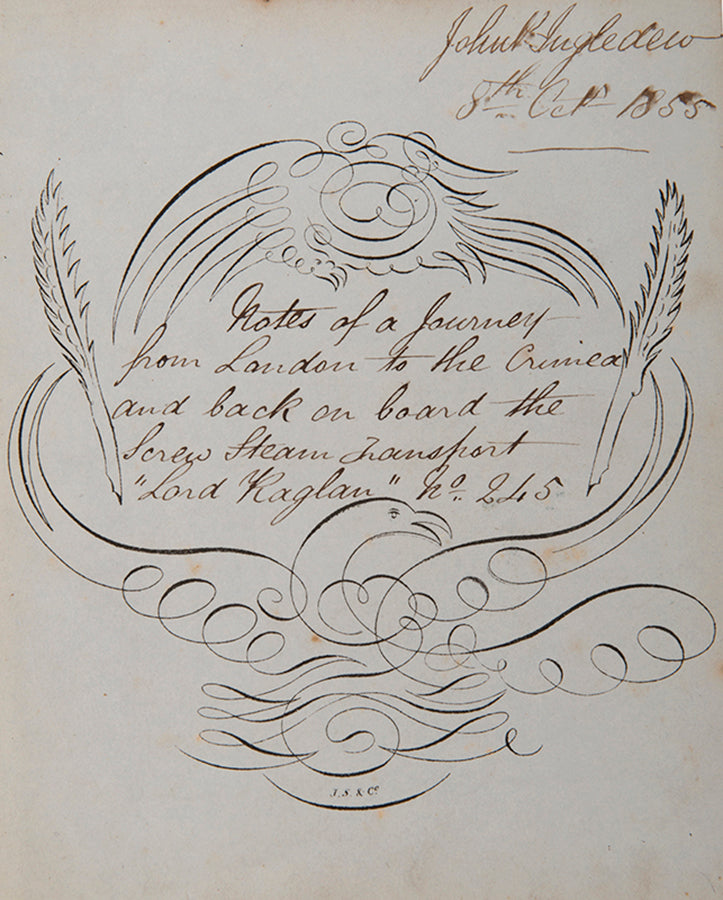 John K Ingledew
8th Oct 1855
Notes of a Journey
from London to the Crimea
and back on board the
Screw Steam Transport
"Lord Raglan" No. 245
J. S. & Co.